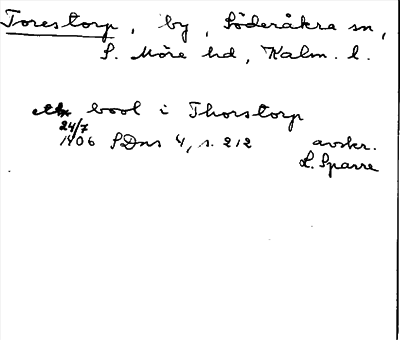 Torestorp, by, Söderåkra sn,
S. Möre hd, Kalm. l.
bool i Thorstorp
24/7
1406 SDns 4, s. 212 avskr.
L. Sparre